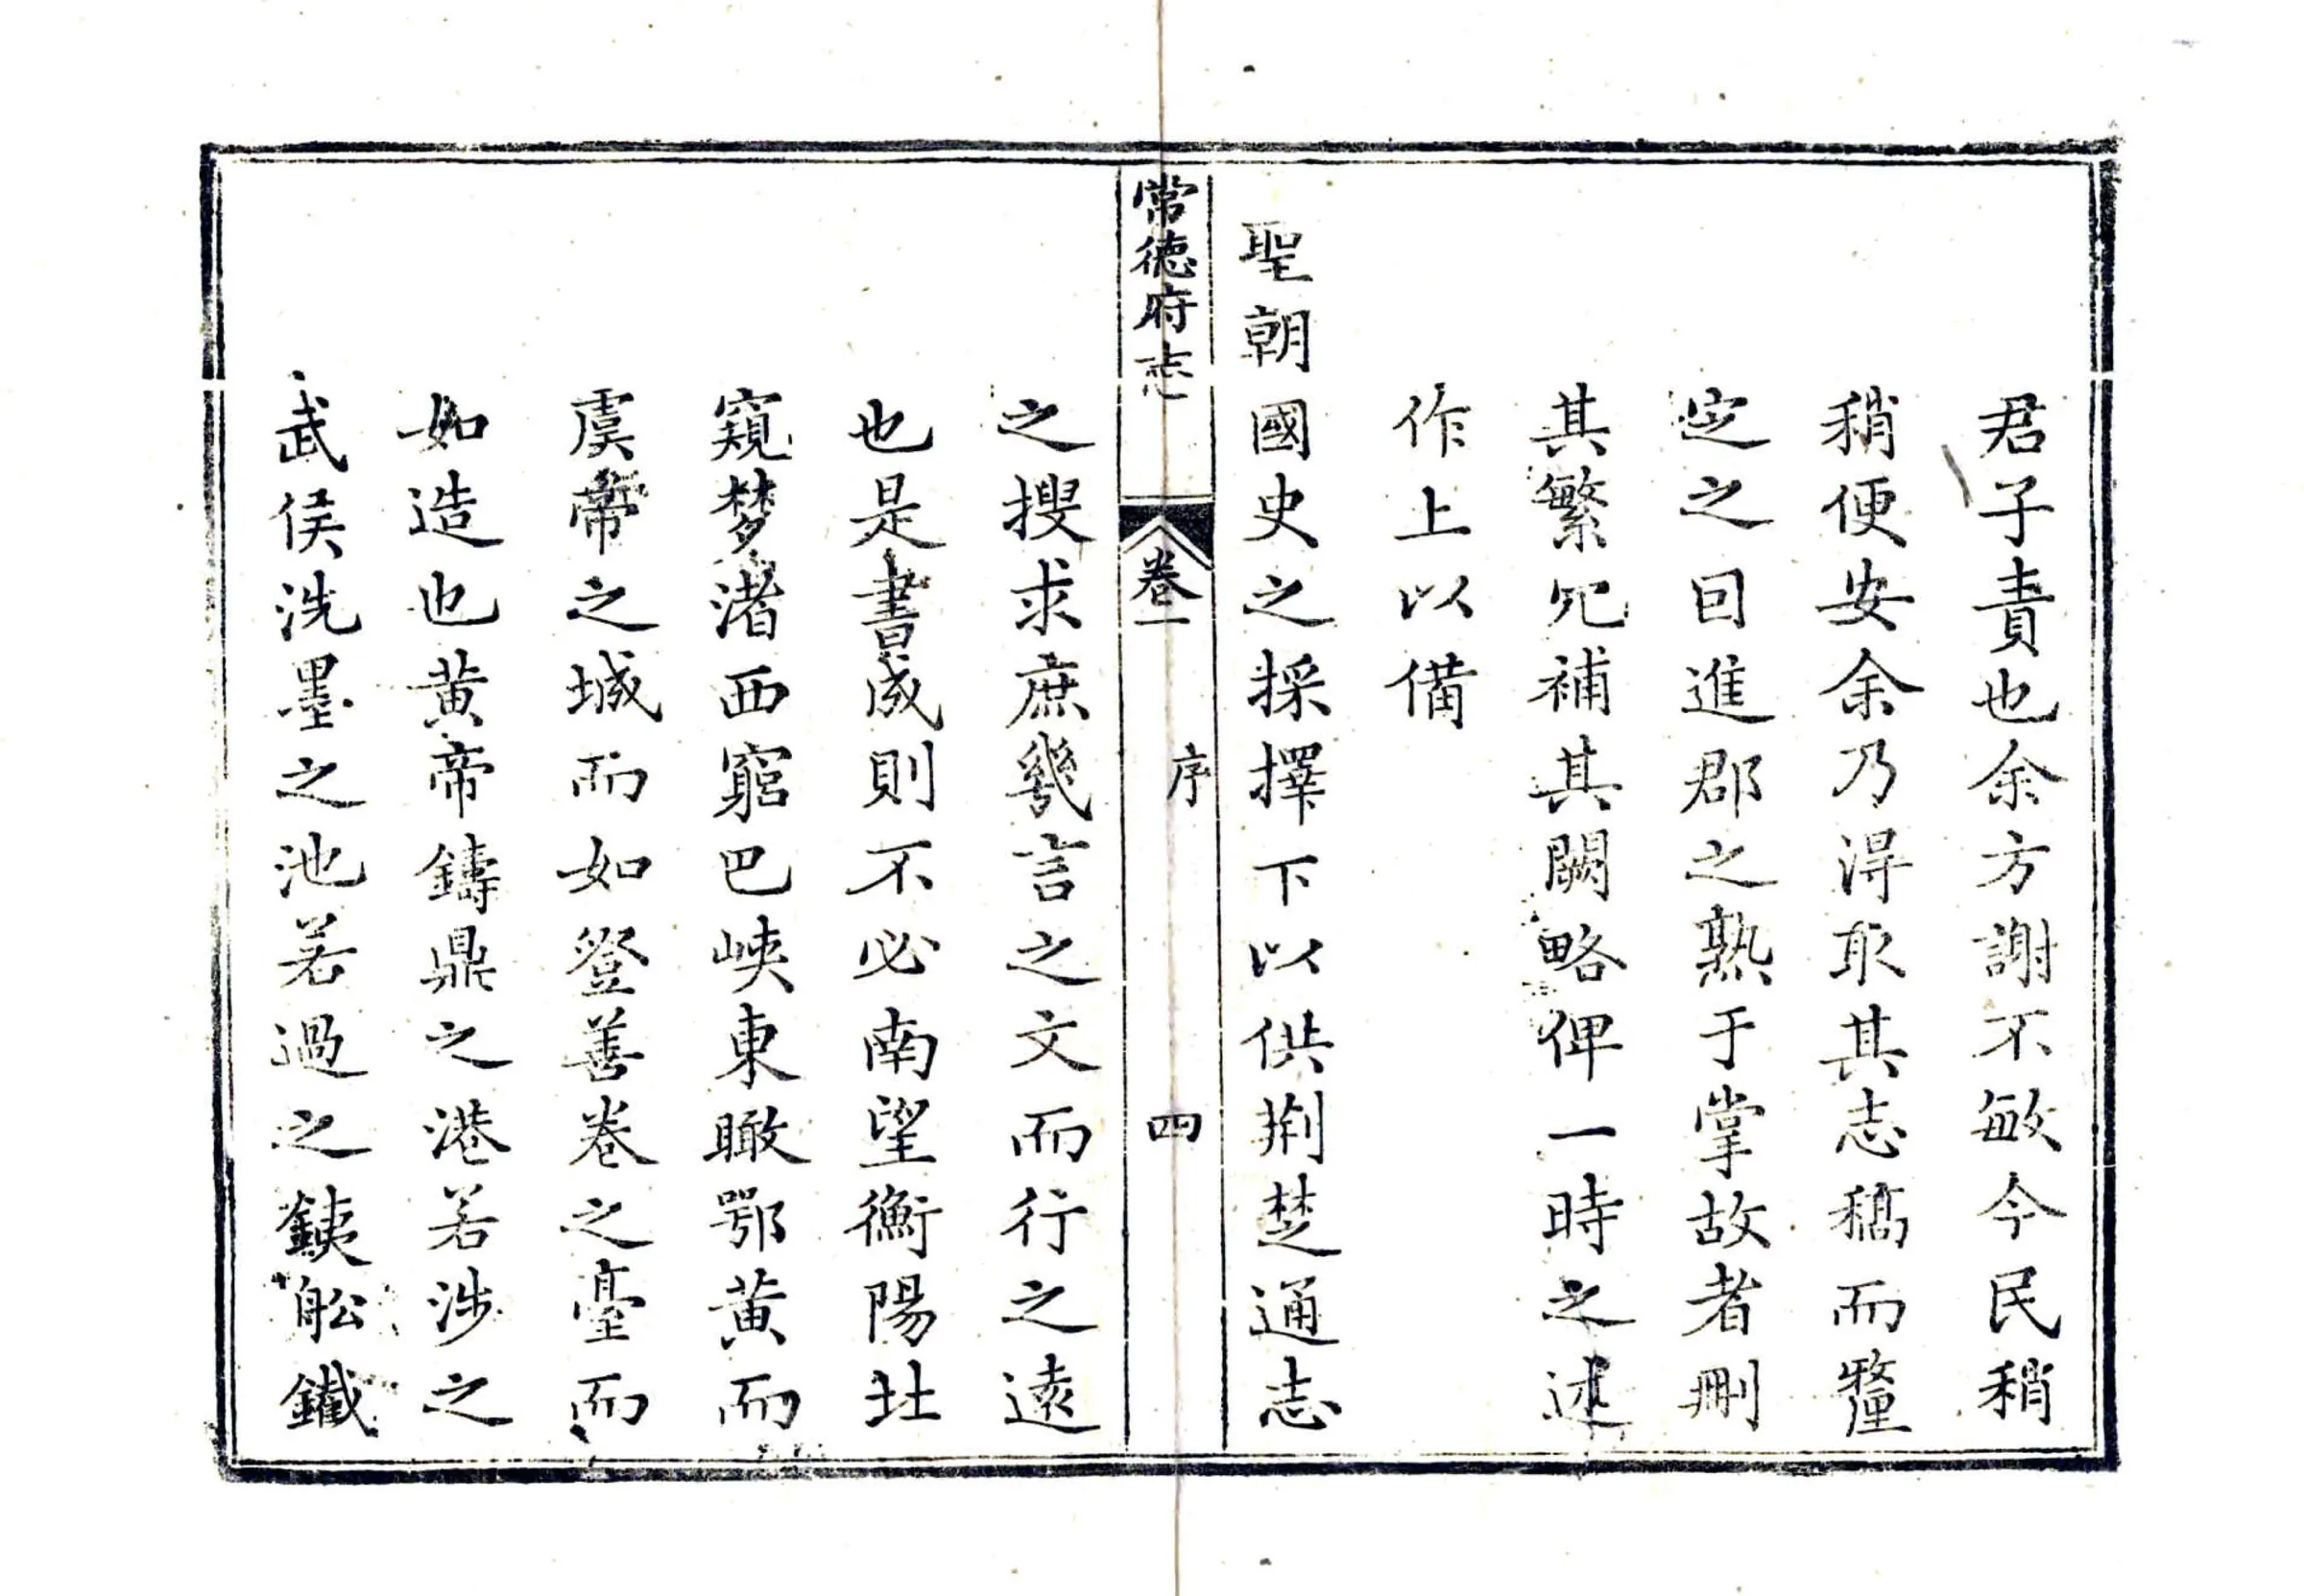 君子責也余方謝不敏今民稍
稍便安余乃淂取其志稿而釐
定之囙進郡之熟于掌故者刪
其繁冗補其闕略俾一時之述
作上以備
聖朝國史之採擇下以供荆楚通志
常德府志 卷一 序 四
之搜求庶幾言之文而行之遠
也是書成則不必南望衡陽北
窺梦渚西窮巴峽東瞰鄂黄而
虞帝之城而如登善卷之臺而
如造也黄帝鑄鼎之港若涉之
武侯洗墨之池若過之銕舩鐵